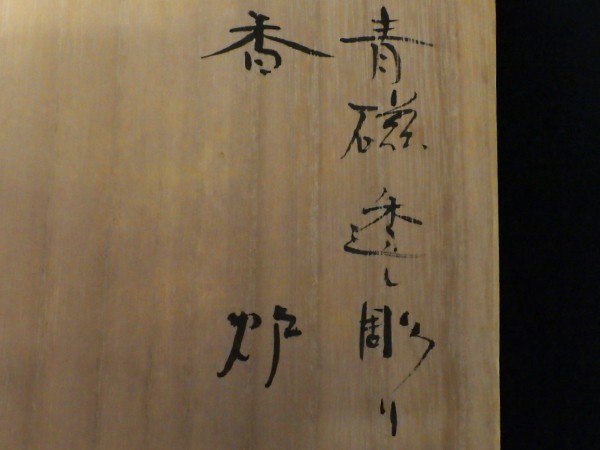 青磁透し彫り
香炉